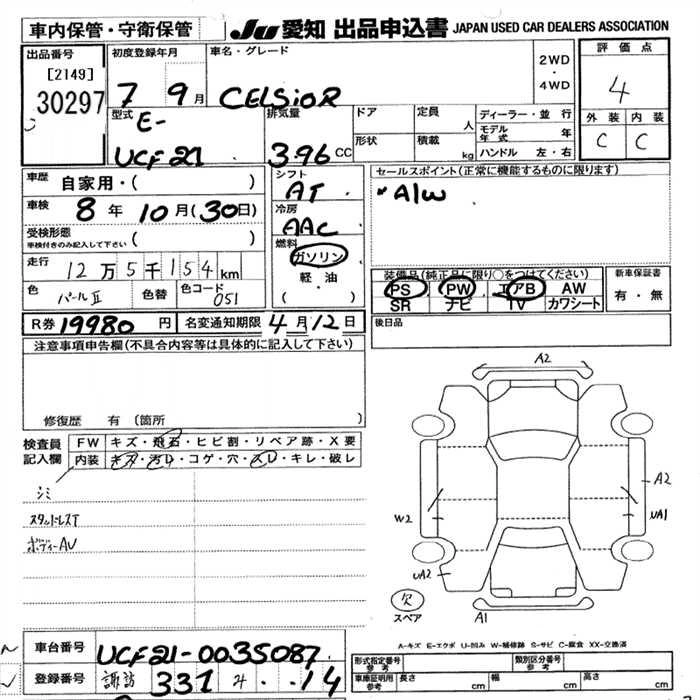 車内保管・守衛保管
JU 愛知 出品申込書 JAPAN USED CAR DEALERS ASSOCIATION
出品番号
[2149]
30297
初度登録年月
7 9月
車名・グレード
CELSioR
2WD
・
4WD
評価点
4
外装 内装
C C
型式
E-
UCF21
排気量
3.96 CC
ドア
定員
人
形状
積載
kg
ディーラー・並行
モデル年式 年
ハンドル 左・右
車歴 自家用・( )
車検 8年 10月(30日)
受検形態
車検付きのみ記入して下さい ( )
走行 12万5千154km
色 パールⅡ 色替 色コード 051
シフト
AT
冷房
AAC
燃料
ガソリン
軽・油
( )
セールスポイント(正常に機能するものに限ります)
A/W
装備品(純正品に限り○をつけてください)
PS PW エアB AW
SR ナビ TV カワシート
新車保証書
有・無
R券 19980円 名変通知期限 4月12日
後日品
注意事項申告欄(不具合内容等は具体的に記入して下さい)
修復歴 有 (箇所 )
検査員
記入欄
FW キズ・飛石・ヒビ割・リペア跡・X要
内装 キズ・汚れ・コゲ・穴・スレ・キレ・破レ
シミ
スタッドレスT
ボディーAU
A2
A2
UA1
W2
UA2
A1
欠
スペア
A-キズ E-エクボ U-凹み W-補修跡 S-サビ C-腐食 XX-交換済
車台番号 UCF21-0035087
登録番号 諏訪 331 ・・14
形式指定番号
参考
類別区分番号
参考
車庫証明用
参考
長さ cm 幅 cm 高さ cm